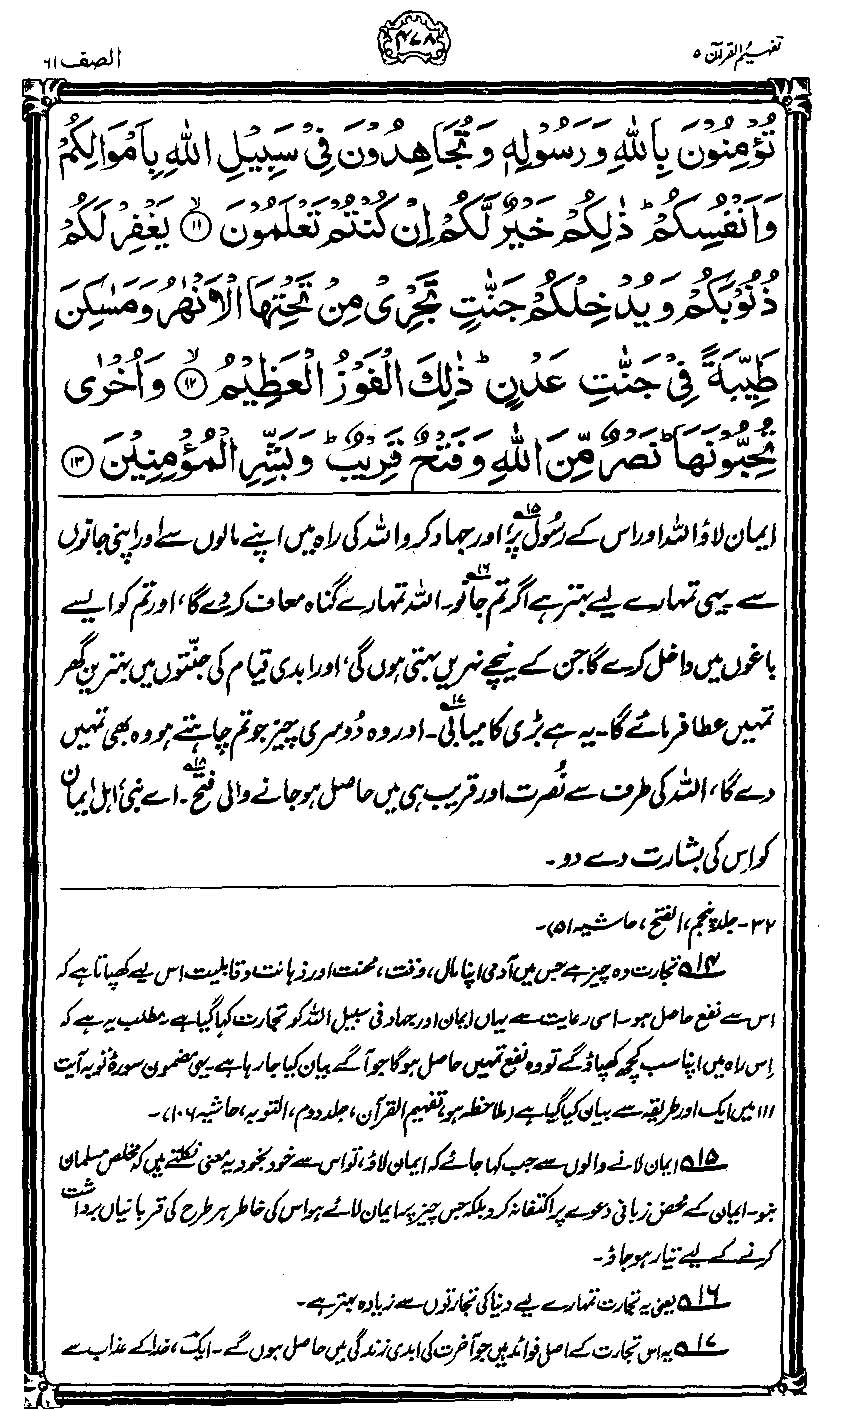 تفہیم القرآن ۵
۴۷۸
الصف ۶۱
تُؤْمِنُوْنَ بِاللّٰهِ وَرَسُوْلِهٖ وَتُجَاهِدُوْنَ فِیْ سَبِیْلِ اللّٰهِ بِاَمْوَالِكُمْ
وَاَنْفُسِكُمْ ؕ ذٰلِكُمْ خَیْرٌ لَّكُمْ اِنْ كُنْتُمْ تَعْلَمُوْنَ ۙ﴿۱۱﴾ یَغْفِرْ لَكُمْ
ذُنُوْبَكُمْ وَیُدْخِلْكُمْ جَنّٰتٍ تَجْرِیْ مِنْ تَحْتِهَا الْاَنْهٰرُ وَمَسٰكِنَ
طَیِّبَةً فِیْ جَنّٰتِ عَدْنٍ ؕ ذٰلِكَ الْفَوْزُ الْعَظِیْمُ ۙ﴿۱۲﴾ وَاُخْرٰی
تُحِبُّوْنَهَا ؕ نَصْرٌ مِّنَ اللّٰهِ وَفَتْحٌ قَرِیْبٌ ؕ وَبَشِّرِ الْمُؤْمِنِیْنَ ﴿۱۳﴾
ایمان لاؤ اللہ اور اس کے رسُول پر،۱۵ اور جہاد کرو اللہ کی راہ میں اپنے مالوں سے اور اپنی جانوں
سے۔ یہی تمہارے لیے بہتر ہے اگر تم جانو۱۶۔ اللہ تمہارے گناہ معاف کر دے گا، اور تم کو ایسے
باغوں میں داخل کرے گا جن کے نیچے نہریں بہتی ہوں گی، اور ابدی قیام کی جنّتوں میں بہترین گھر
تمہیں عطا فرمائے گا۔ یہ ہے بڑی کامیابی۱۷۔ اور وہ دُوسری چیز جو تم چاہتے ہو وہ بھی تمہیں
دے گا، اللہ کی طرف سے نُصرت اور قریب ہی میں حاصل ہو جانے والی فتح۱۸۔ اے نبیؐ، اہلِ ایمان
کو اِس کی بشارت دے دو۔
۳۲۔ جلد پنجم، الفتح، حاشیہ ۵۱)۔
۱۴؎ تجارت وہ چیز ہے جس میں آدمی اپنا مال، وقت، محنت اور ذہانت و قابلیت اس لیے کھپاتا ہے کہ
اس سے نفع حاصل ہو۔ اسی رعایت سے یہاں ایمان اور جہاد فی سبیل اللہ کو تجارت کہا گیا ہے۔ مطلب یہ ہے کہ
اِس راہ میں اپنا سب کچھ کھپاؤ گے تو وہ نفع تمہیں حاصل ہو گا جو آگے بیان کیا جا رہا ہے۔ یہی مضمون سورۂ توبہ آیت
۱۱۱ میں ایک اور طریقہ سے بیان کیا گیا ہے (ملاحظہ ہو، تفہیم القرآن، جلد دوم، التوبہ، حاشیہ ۱۰۶)۔
۱۵؎ ایمان لانے والوں سے جب کہا جائے کہ ایمان لاؤ، تو اس سے خود بخود یہ معنی نکلتے ہیں کہ مخلص مسلمان
بنو۔ ایمان کے محض زبانی دعوے پر اکتفا نہ کرو بلکہ جس چیز پر ایمان لائے ہو اس کی خاطر ہر طرح کی قربانیاں برداشت
کرنے کے لیے تیار ہو جاؤ۔
۱۶؎ یعنی یہ تجارت تمہارے لیے دنیا کی تجارتوں سے زیادہ بہتر ہے۔
۱۷؎ یہ اس تجارت کے اصل فوائد ہیں جو آخرت کی ابدی زندگی میں حاصل ہوں گے۔ ایک، خدا کے عذاب سے